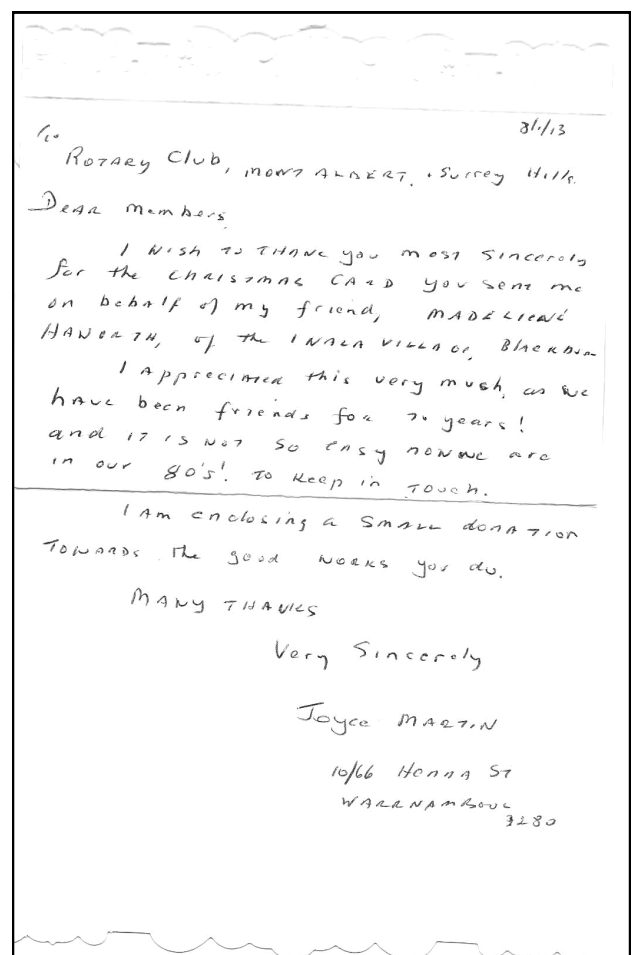 8/1/13
To
Rotary Club, MONT ALBERT. + Surrey Hills.
Dear Members,
I WISH TO THANK you most sincerely
for the CHRISTMAS CARD you sent me
on behalf of my friend, MADELIENE
HAWORTH, of the INALA VILLAGE, Blackburn
I Appreciated this very much, as we
have been friends for 70 years!
and IT IS NOT so easy now we are
in our 80's! To keep in Touch.
I AM enclosing a SMALL donATION
TOWARDS the good works you do.
MANY THANKS
Very Sincerely
Joyce MARTIN
10/66 Henna ST
WARRNAMBOOL
3280